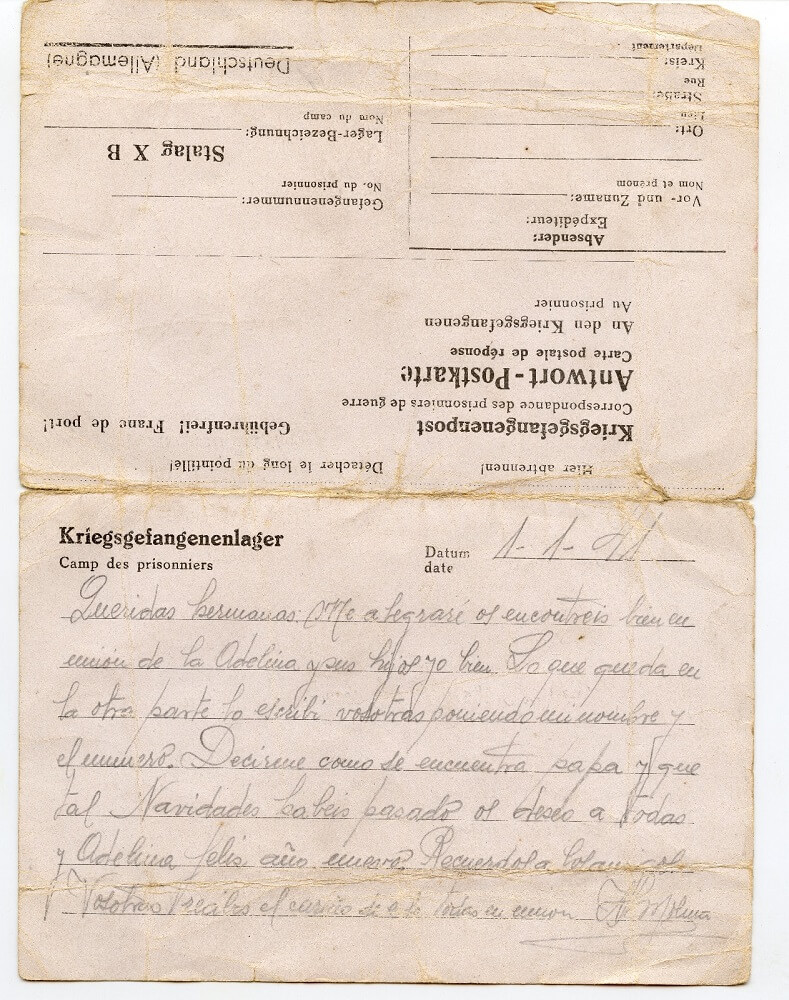 Deutschland (Allemagne)
Lager-Bezeichnung:
Nom du camp
Stalag X B
Gefangenennummer:
No. du prisonnier
Kreis:
Département
Straße:
Rue
Ort:
Lieu
Vor- und Zuname:
Nom et prénom
Absender:
Expéditeur:
An den Kriegsgefangenen
Au prisonnier
Antwort-Postkarte
Carte postale de réponse
Kriegsgefangenenpost
Correspondance des prisonniers de guerre
Gebührenfrei! Franc de port!
Hier abtrennen! Détacher le long du pointillé!
Kriegsgefangenenlager
Camp des prisonniers
Datum
date
1-1-41
Queridas hermanas: Me alegraré os encontreis bien en
unión de la Adelina y sus hijos yo bien. Lo que queda en
la otra parte lo escribi vosotras poniendo mi nombre y
el numero. Decirme como se encuentra papa y que
tal Navidades habeis pasado os deseo a todas
y Adelina felis año nuevo. Recuerdos a
Vosotras el cariño de todas en union Molina